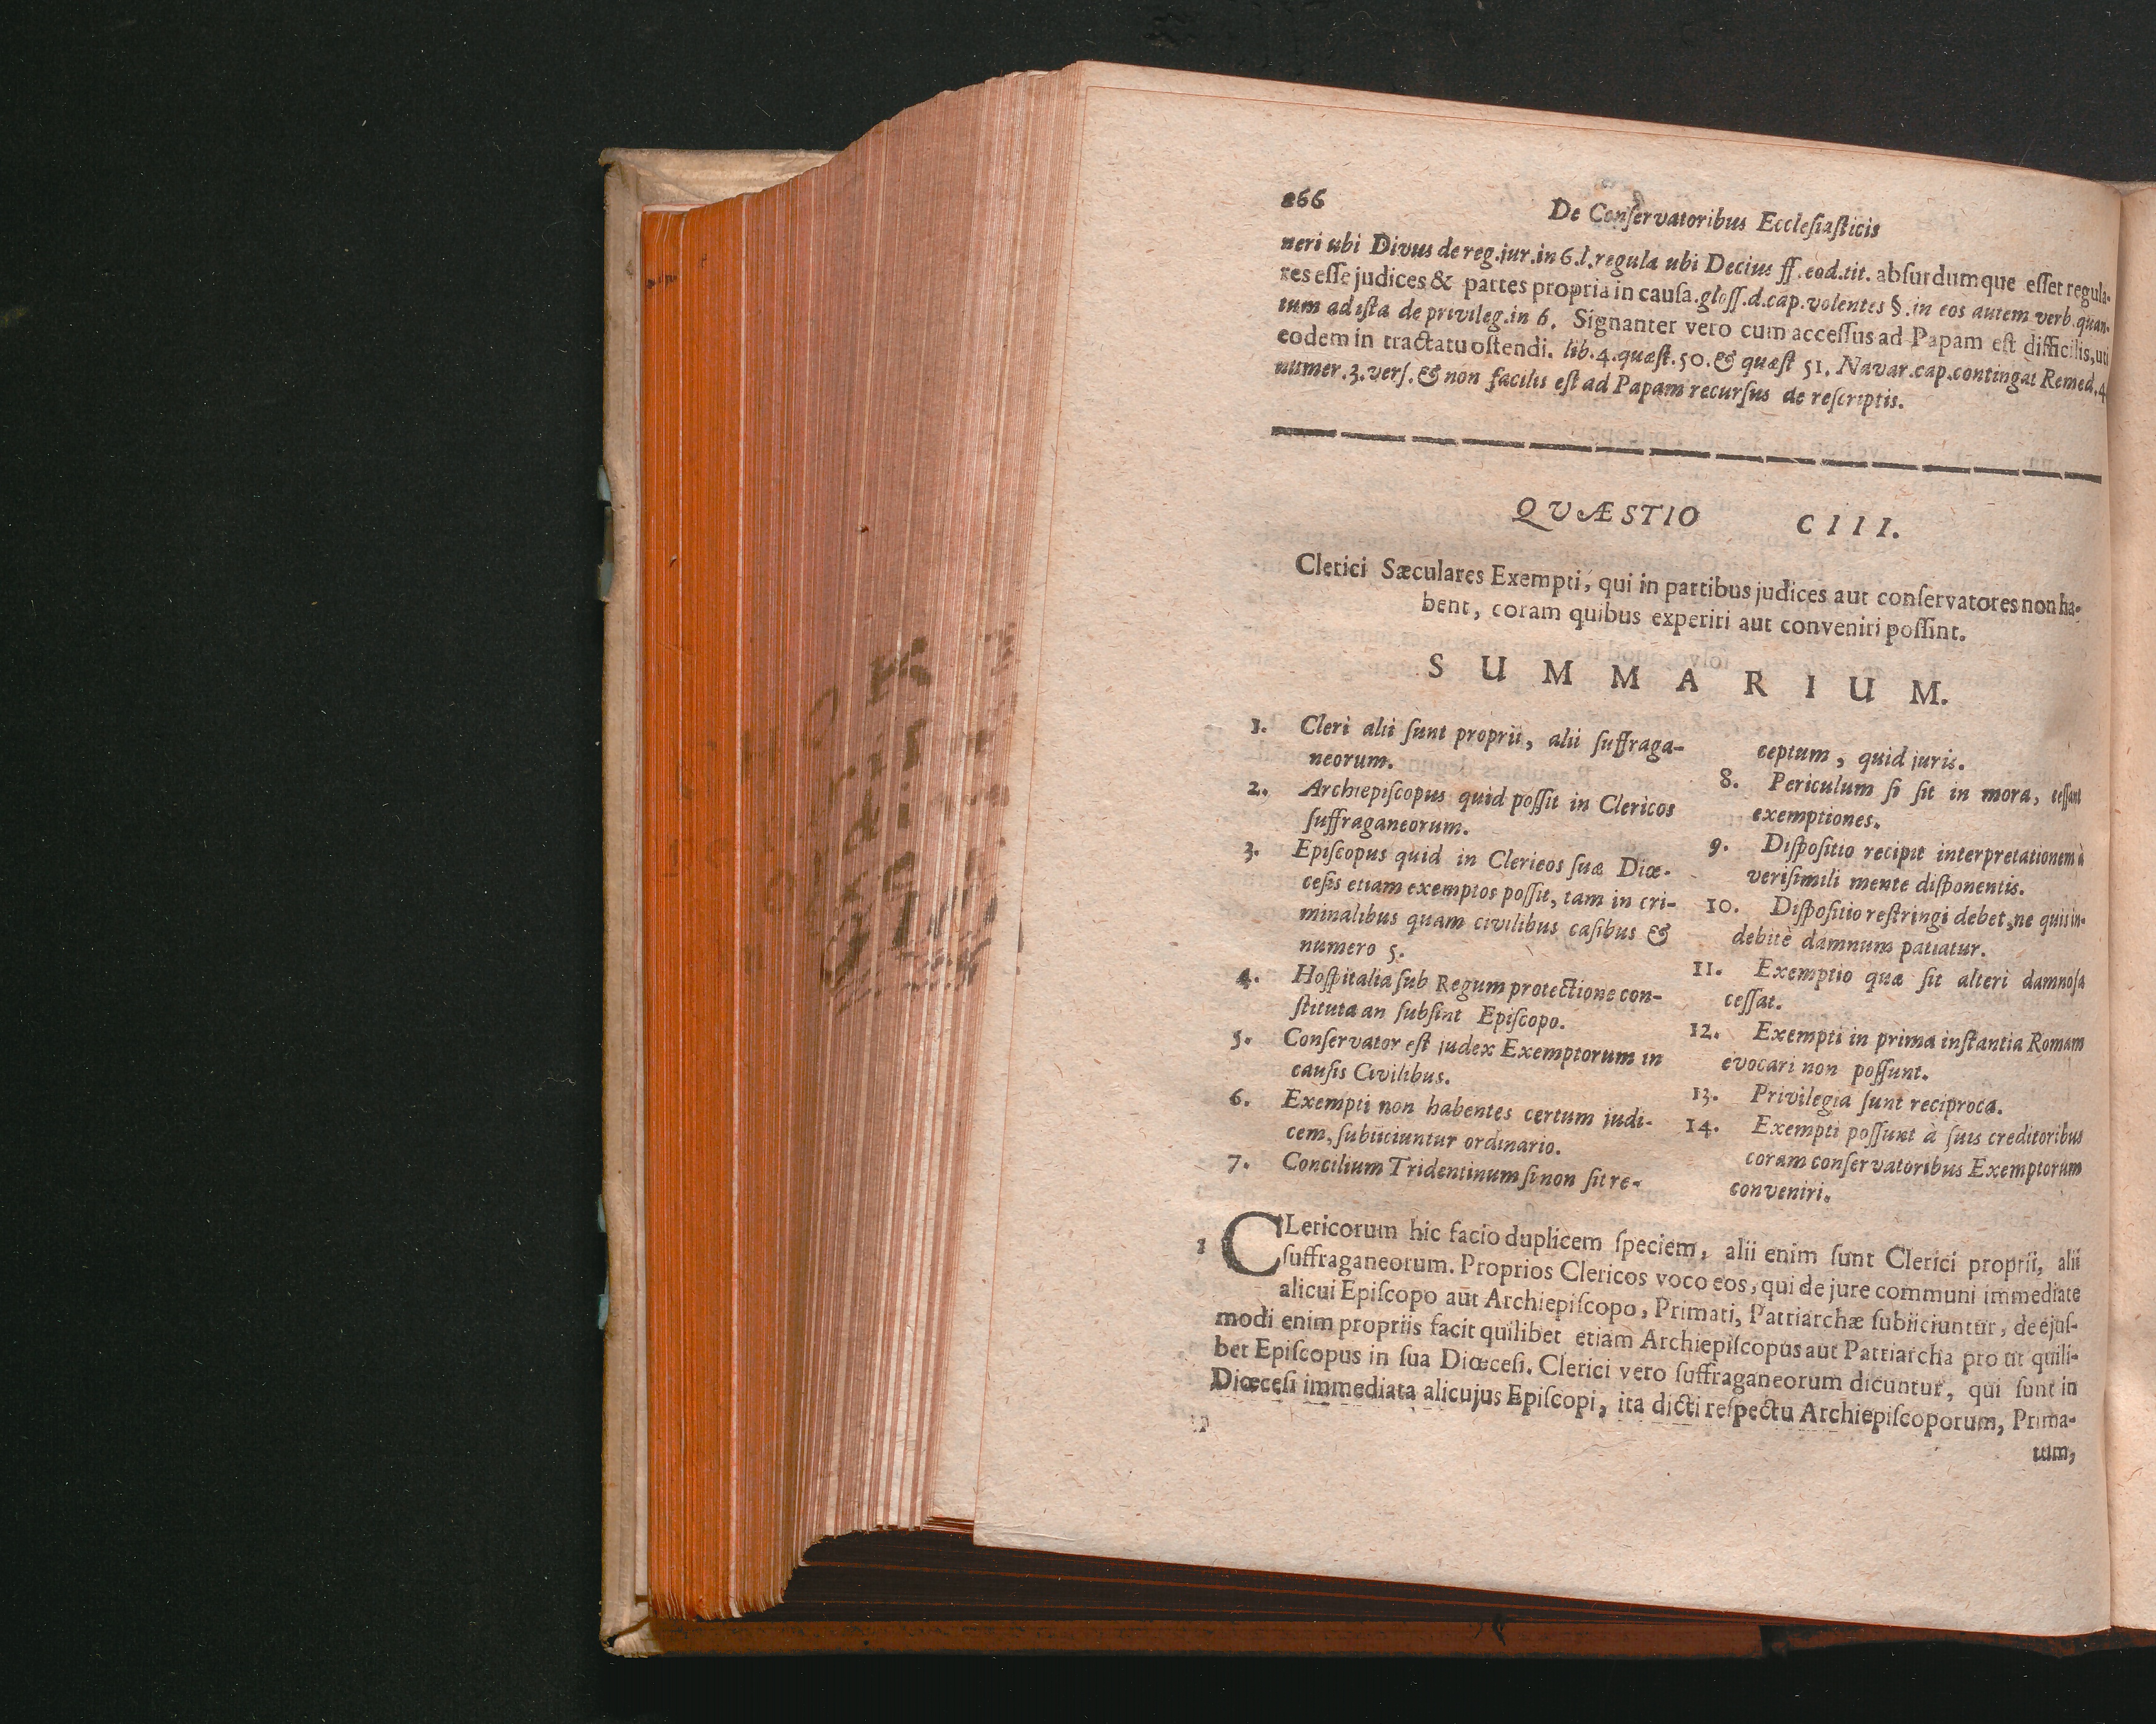 266 De Conſervatoribus Eccleſiaſticis
neri ubi Divus de reg.jur.in 6.l.regula ubi Decius ff.eod.tit. abſurdumque eſſet regula-
res eſſe judices & partes propria in cauſa.gloſſ.d.cap.volentes §.in eos autem verb.quan-
tum ad iſta de privileg.in 6. Signanter vero cum acceſſus ad Papam eſt difficilis, uti
eodem in tractatu oſtendi. lib.4.quæſt.50.& quæſt 51. Navar.cap.contingat Remed.4
numer.3.verſ.& non facilis eſt ad Papam recurſus de reſcriptis.
QUÆSTIO CIII.
Clerici Sæculares Exempti, qui in partibus judices aut conſervatores non ha-
bent, coram quibus experiri aut conveniri poſſint.
SUMMARIUM.
1. Cleri alii ſunt proprii, alii ſuffraga-
neorum.
2. Archiepiſcopus quid poſſit in Clericos
ſuffraganeorum.
3. Epiſcopus quid in Clericos ſuæ Diœ-
ceſis etiam exemptos poſſit, tam in cri-
minalibus quam civilibus caſibus &
numero 5.
4. Hoſpitalia ſub Regum protectione con-
ſtituta an ſubſint Epiſcopo.
5. Conſervator eſt judex Exemptorum in
cauſis Civilibus.
6. Exempti non habentes certum judi-
cem, ſubiiciuntur ordinario.
7. Concilium Tridentinum ſi non ſit re-
ceptum, quid juris.
8. Periculum ſi ſit in mora, ceſſant
exemptiones.
9. Diſpoſitio recipit interpretationem à
veriſimili mente diſponentis.
10. Diſpoſitio reſtringi debet, ne quis in-
debitè damnum patiatur.
11. Exemptio quæ ſit alteri damnoſa
ceſſat.
12. Exempti in prima inſtantia Romam
evocari non poſſunt.
13. Privilegia ſunt reciproca.
14. Exempti poſſunt à ſuis creditoribus
coram conſervatoribus Exemptorum
conveniri.
1 CLericorum hic facio duplicem ſpeciem, alii enim ſunt Clerici proprii, alii
ſuffraganeorum. Proprios Clericos voco eos, qui de jure communi immediate
alicui Epiſcopo aut Archiepiſcopo, Primati, Patriarchæ ſubiiciuntur, de ejuſ-
modi enim propriis facit quilibet etiam Archiepiſcopus aut Patriarcha pro ut quili-
bet Epiſcopus in ſua Diœceſi. Clerici vero ſuffraganeorum dicuntur, qui ſunt in
Diœceſi immediata alicujus Epiſcopi, ita dicti reſpectu Archiepiſcoporum, Prima-
tum,